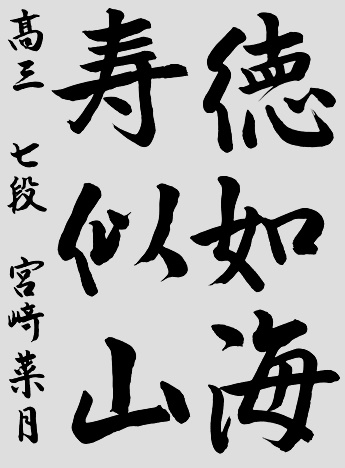 徳如海
寿似山
髙三 七段 宮﨑菜月